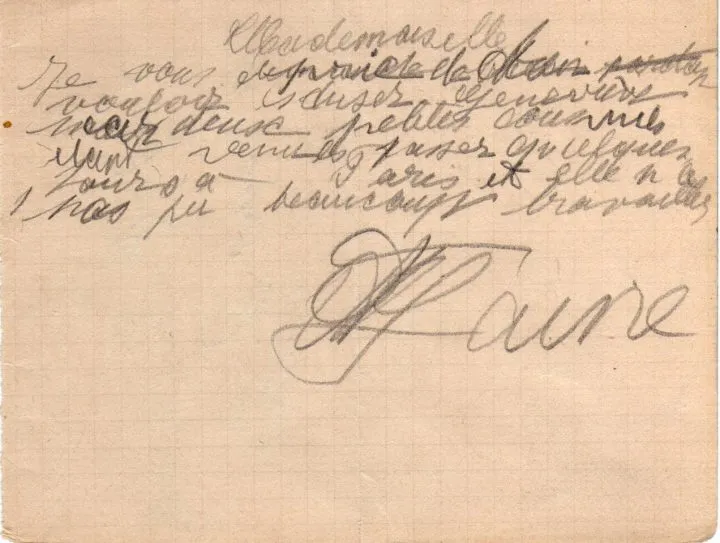 Mademoiselle
Je vous demande de
vouloir éxcuser Geneviève
car deux petites cousines
étant venues passer quelques
jours à Paris et elle n a
pas pu beaucoup travailler
Faivre